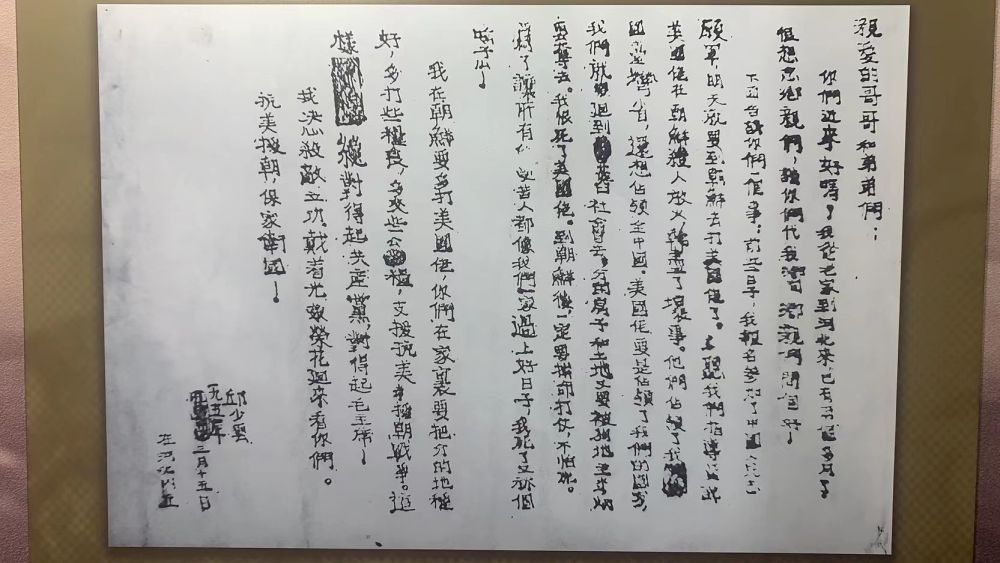 親愛的哥哥和弟弟們：
你們近來好嗎？我從老家到河北來，已有
但想念鄉親們，請你們代我 鄉親們問個好！
你們一個事：前些日子，我報名參加了中國
願軍，明天就要到朝鮮去打美國佬了。 聽我們指導員說
美國佬在朝鮮殺人放火 壞事。他們佔領了我
國臺灣省，還想佔領全中國。美國佬要是佔領了我們的國家，
我們就 退到 舊社會去，分的房子和土地又要被 地主
去。我恨死了美國佬。到朝鮮後，一定要拼命打仗，不怕死。
爲了讓所有 受苦人都像我們一家過上好日子，我死了又
我在朝鮮要多打美國佬，你們在家裏要把分的地種
好，多打些糧食，多交些公 糧，支援抗美 援朝戰爭。這
樣 纔對得起共產黨，對得起毛主席！
我決心殺敵立功，戴着光榮花 回來看你們。
抗美援朝，保家衛國！
邱少雲
一九五 年
三月十五日
在河北